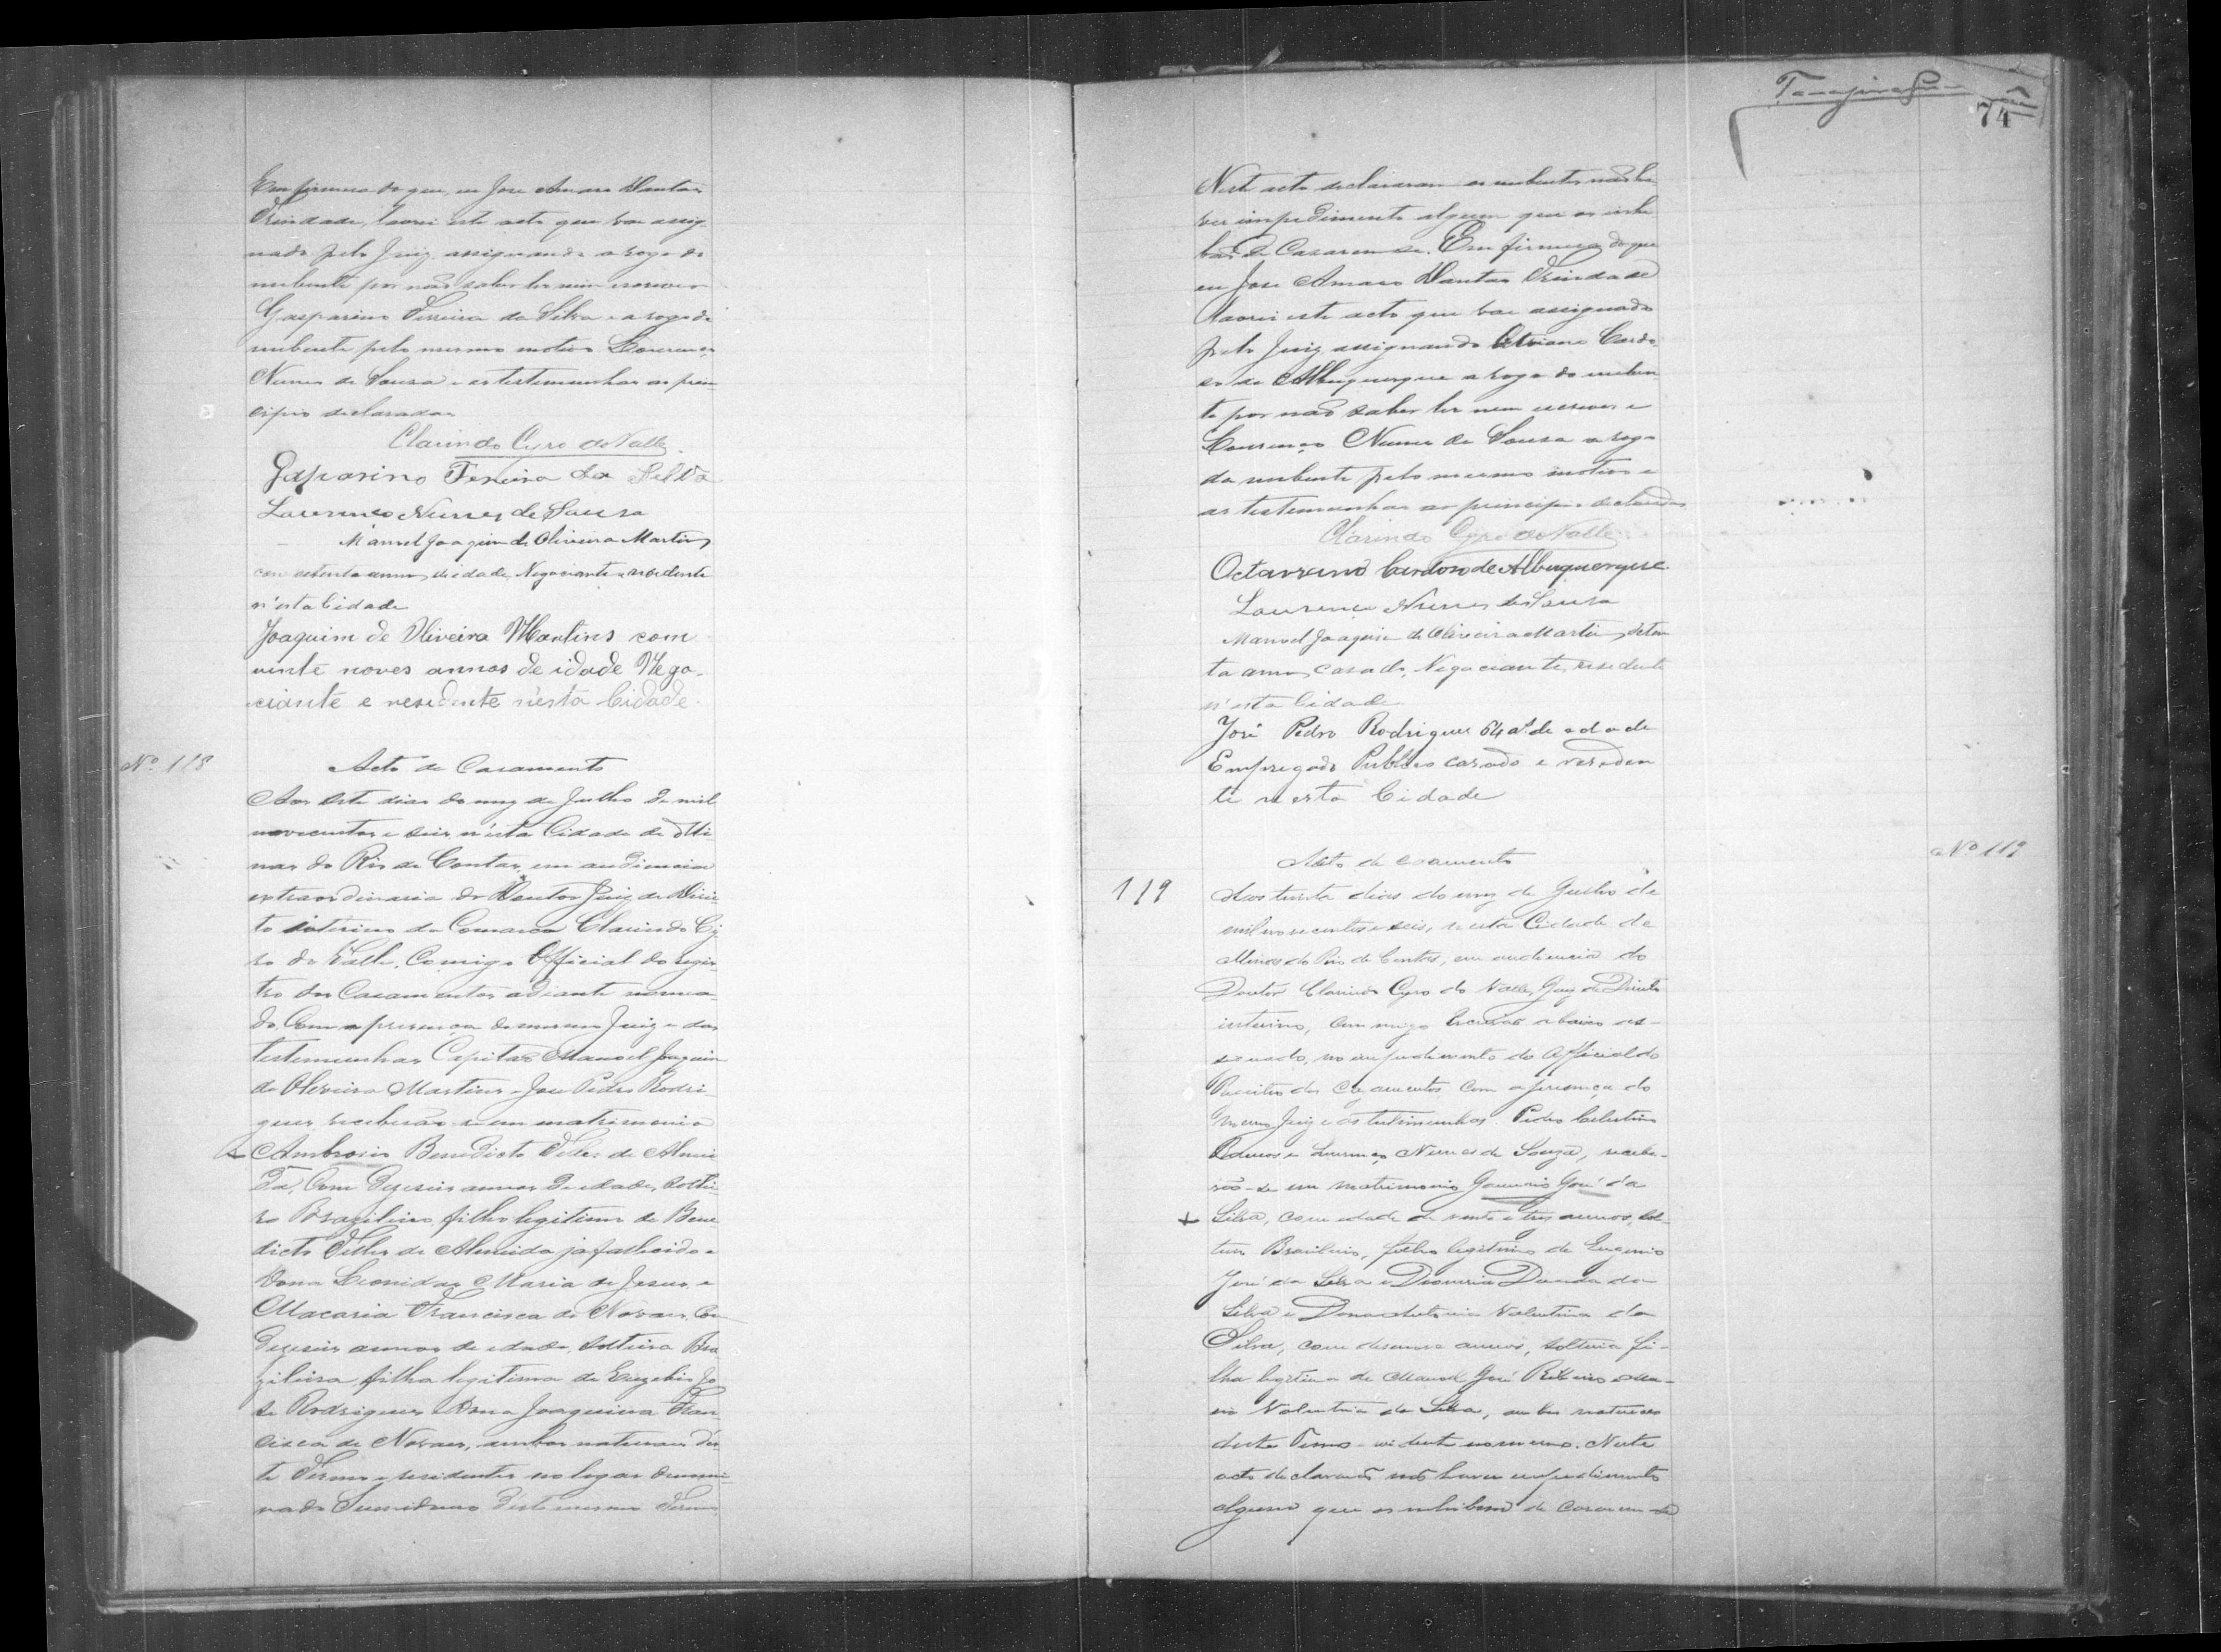 Em firmeza do que, eu José Amaro Dantas
Trindade, lavrei este acto que vae assig-
nado pelo Juiz, assignando a rogo do
nubente por não saber ler nem escrever
Gasparino Ferreira da Silva e a rogo da
nubente pelo mesmo motivo Lourenço
Nunes de Sousa e as testemunhas ao prin
cipio declaradas
Clarindo Cyro do Valle.
Gasparino Ferreira da Silva
Lourenço Nunes de Sousa
Manoel Joaquim de Oliveira Martins
com setenta annos de idade, Negociante e residente
n'esta Cidade
Joaquim de Oliveira Martins com
vinte noves annos de idade Nego-
ciante e residente n'esta Cidade.
Nº 118
Acto de Casamento
Aos sete dias do mez de Julho de mil
novecentos e seis, n'esta Cidade de Mi-
nas do Rio de Contas, em audiencia
extraordinaria do Doutor Juiz de Direi
to interino da Comarca Clarindo Cy-
ro do Valle, Comigo Official do regis-
tro dos Casamentos adiante nomea-
do, Com a presença do mesmo Juiz e das
testemunhas Capitão Manoel Joaquim
de Oliveira Martins e José Pedro Rodri-
gues, receberão se em matrimonio
Ambrosio Benedicto Telles de Almei
da, Com dezeseis annos de edade, soltei-
ro Brazileiro, filho legitimo de Bene
dicto Telles de Almeida ja fallecido e
Dona Leonidas Maria de Jesus, e
Macaria Francisca de Novaes, Com
dezeseis annos de edade, solteira Bra
zileira, filha legitima de Euzebio Jo
sé Rodrigues e Dona Joaquina Fran-
cisca de Novaes, ambos naturaes des-
te Termo e residentes no logar denomi-
nado Sumidouro deste mesmo Termo.
74
Neste acto declararam os nubentes não ha
ver impedimento algum que os inhi
bão de Casarem se. Em firmeza do que
eu José Amaro Dantas Trindade
lavrei este acto que vae assignado
pelo Juiz, assignando Octaviano Cardo-
so de Albuquerque a rogo do nuben
te por não saber ler nem escrever e
Lourenço Nunes de Sousa a rogo
da nubente pelo mesmo motivo e
as testemunhas ao principio declaradas
Clarindo Cyro do Valle
Octaviano Cardoso de Albuquerque
Lourenço Nunes de Sousa
Manoel Joaquim de Oliveira Martins, seten
ta annos, casado, Negociante, residente
n'esta Cidade
José Pedro Rodrigues 64 aˢ de edade
Empregado Publico casado e residen
te nesta Cidade
Nº 119
Acto de casamento
119
Aos trinta dias do mez de Julho de
mil novecentos e seis, nesta Cidade de
Minas do Rio de Contas, em audiencia do
Doutor Clarindo Cyro do Valle, Juiz de Direito
interino, commigo Escrivão abaixo as-
signado, no impedimento do Official do
Registro dos Casamentos com a presença do
mesmo Juiz e as testimunhas Pedro Celestino
e Lourenço Nunes de Souza, recebe-
rão-se em matrimonio José da
Silva, com edade de vinte e tres annos, sol-
teiro Brasileiro, filho legitimo de Eugenio
José da Silva e da
Silva e Dona Antonia Valentina da
Silva, com desenove annos, solteira fi-
lha legitima de Manoel José Ribeiro e Ma-
ria Valentina da Silva, ambos naturaes
deste Termo e residente no mesmo. Neste
acto declararão não haver impedimento
algum que os inhibam de casarem-se